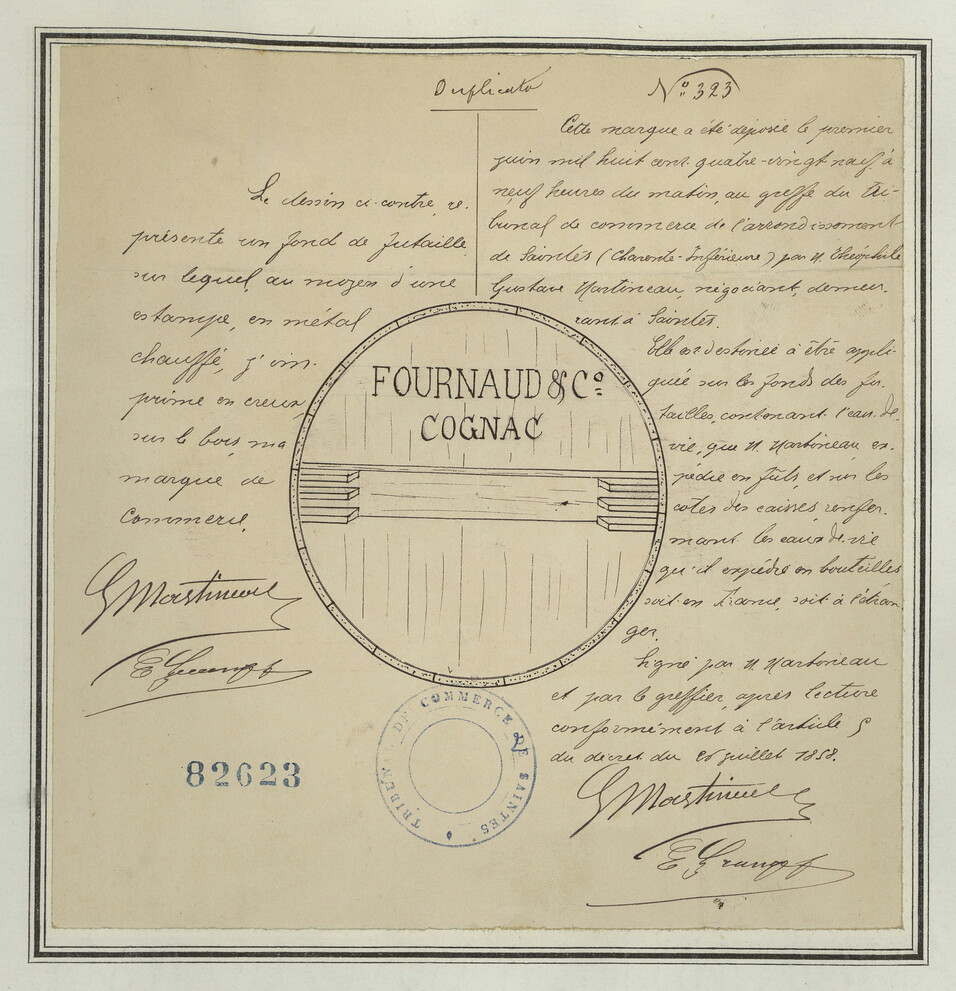 Duplicata
Le dessin ci-contre, re-
présente un fond de futaille
sur lequel, au moyen d'une
estampe, en métal
chauffé, j'im-
prime en creux,
sur le bois, ma
marque de
Commerce.
GMartineau
FOURNAUD & Cº
COGNAC
Nº 323
Cette marque a été déposée le premier
juin mil huit cent quatre-vingt neuf à
neuf heures du matin, au greffe du Tri-
bunal de commerce de l'arrondissement
de Saintes (Charente-Inférieure) par M. Théophile
Gustave Martineau, négociant, demeu-
rant à Saintes.
Elle est destinée à être appli-
quée sur les fonds des fu-
tailles, contenant l'eau-de-
vie, que M. Martineau ex-
pédie en fûts et sur les
cotés des caisses renfer-
mant les eaux-de-vie
qu'il expédie en bouteilles
soit en France, soit à l'étran-
ger.
Signé par M. Martineau
et par le greffier, après lecture
conformément à l'article 5
du décret du 26 juillet 1858.
GMartineau
TRIBUNAL DE COMMERCE DE SAINTES
82623